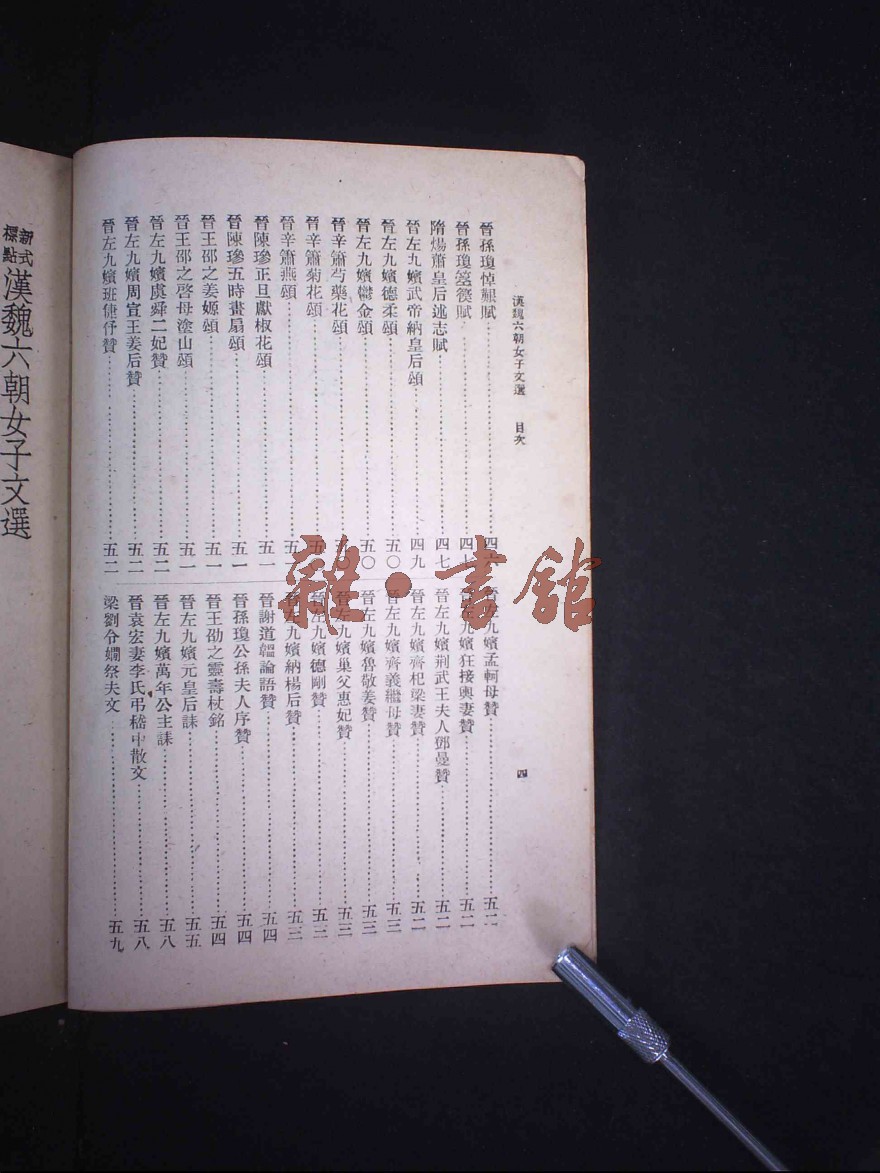 漢魏六朝女子文選 目次 四
晉孫瓊悼艱賦
晉孫瓊箜篌賦
隋煬蕭皇后述志賦 四七
晉左九嬪武帝納皇后頌 四九
晉左九嬪德柔頌 五〇
晉左九嬪鬱金頌 五〇
晉辛簫芍藥花頌
晉辛簫菊花頌
晉辛簫燕頌
晉陳㻸正旦獻椒花頌 五一
晉陳㻸五時畫扇頌 五一
晉王邵之姜嫄頌 五一
晉王邵之啓母塗山頌 五一
晉左九嬪虞舜二妃贊 五二
晉左九嬪周宣王姜后贊 五二
晉左九嬪班倢伃贊 五二
晉左九嬪孟軻母贊 五二
晉左九嬪狂接輿妻贊 五二
晉左九嬪荆武王夫人鄧曼贊 五二
晉左九嬪齊杞梁妻贊 五二
晉左九嬪齊義繼母贊 五三
晉左九嬪魯敬姜贊 五三
晉左九嬪巢父惠妃贊 五三
晉左九嬪德剛贊 五三
晉左九嬪納楊后贊 五三
晉謝道韞論語贊 五四
晉孫瓊公孫夫人序贊 五四
晉王劭之靈壽杖銘 五四
晉左九嬪元皇后誄 五五
晉左九嬪萬年公主誄 五八
晉袁宏妻李氏弔嵇中散文 五八
梁劉令嫺祭夫文 五九
新式標點漢魏六朝女子文選
雜·書館